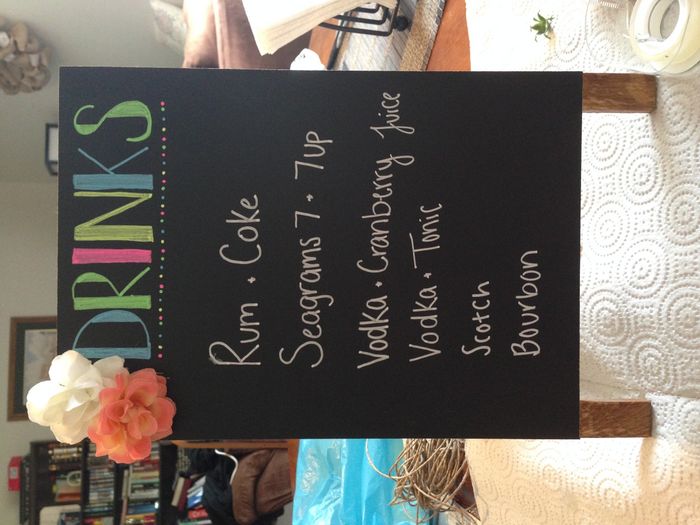 DRINKS
Rum + Coke
Seagrams 7 + 7up
Vodka + Cranberry Juice
Vodka + Tonic
Scotch
Bourbon